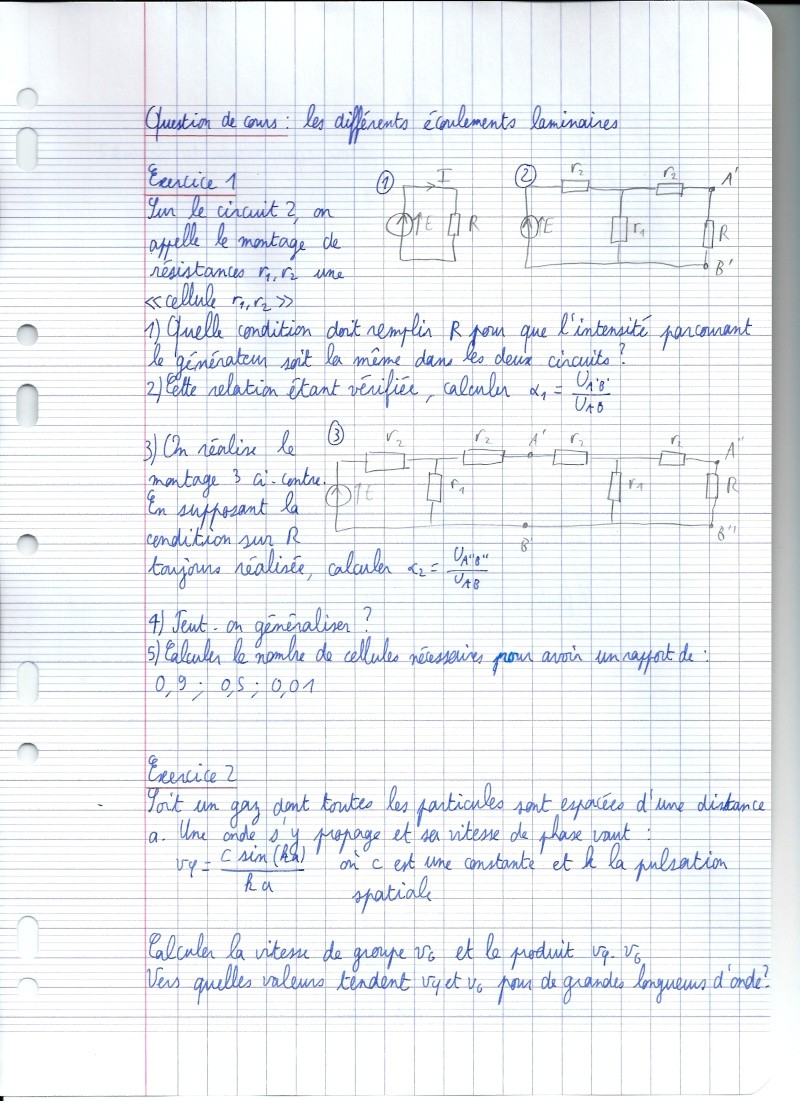 Question de cours : les différents écoulements laminaires
Exercice 1
Sur le circuit 2, on
appelle le montage de
résistances r1, r2 une
<<cellule r1, r2>>
① I E R
② r2 r2 A' E r1 R B'
1) Quelle condition doit remplir R pour que l'intensité parcourant
le générateur soit la même dans les deux circuits ?
2) Cette relation étant vérifiée, calculer α1 = UA'B' / UAB
3) On réalise le
montage 3 ci-contre.
En supposant la
condition sur R
toujours réalisée, calculer α2 = UA''B'' / UAB
③ r2 r2 A' r2 r2 A'' E r1 r1 R B' B''
4) Peut-on généraliser ?
5) Calculer le nombre de cellules nécessaires pour avoir un rapport de :
0,9 ; 0,5 ; 0,01
Exercice 2
Soit un gaz dont toutes les particules sont espacées d'une distance
a. Une onde s'y propage et sa vitesse de phase vaut :
vφ = C sin(ka) / ka où c est une constante et k la pulsation
spatiale
Calculer la vitesse de groupe vG et le produit vφ.vG
Vers quelles valeurs tendent vφ et vG pour de grandes longueurs d'onde?